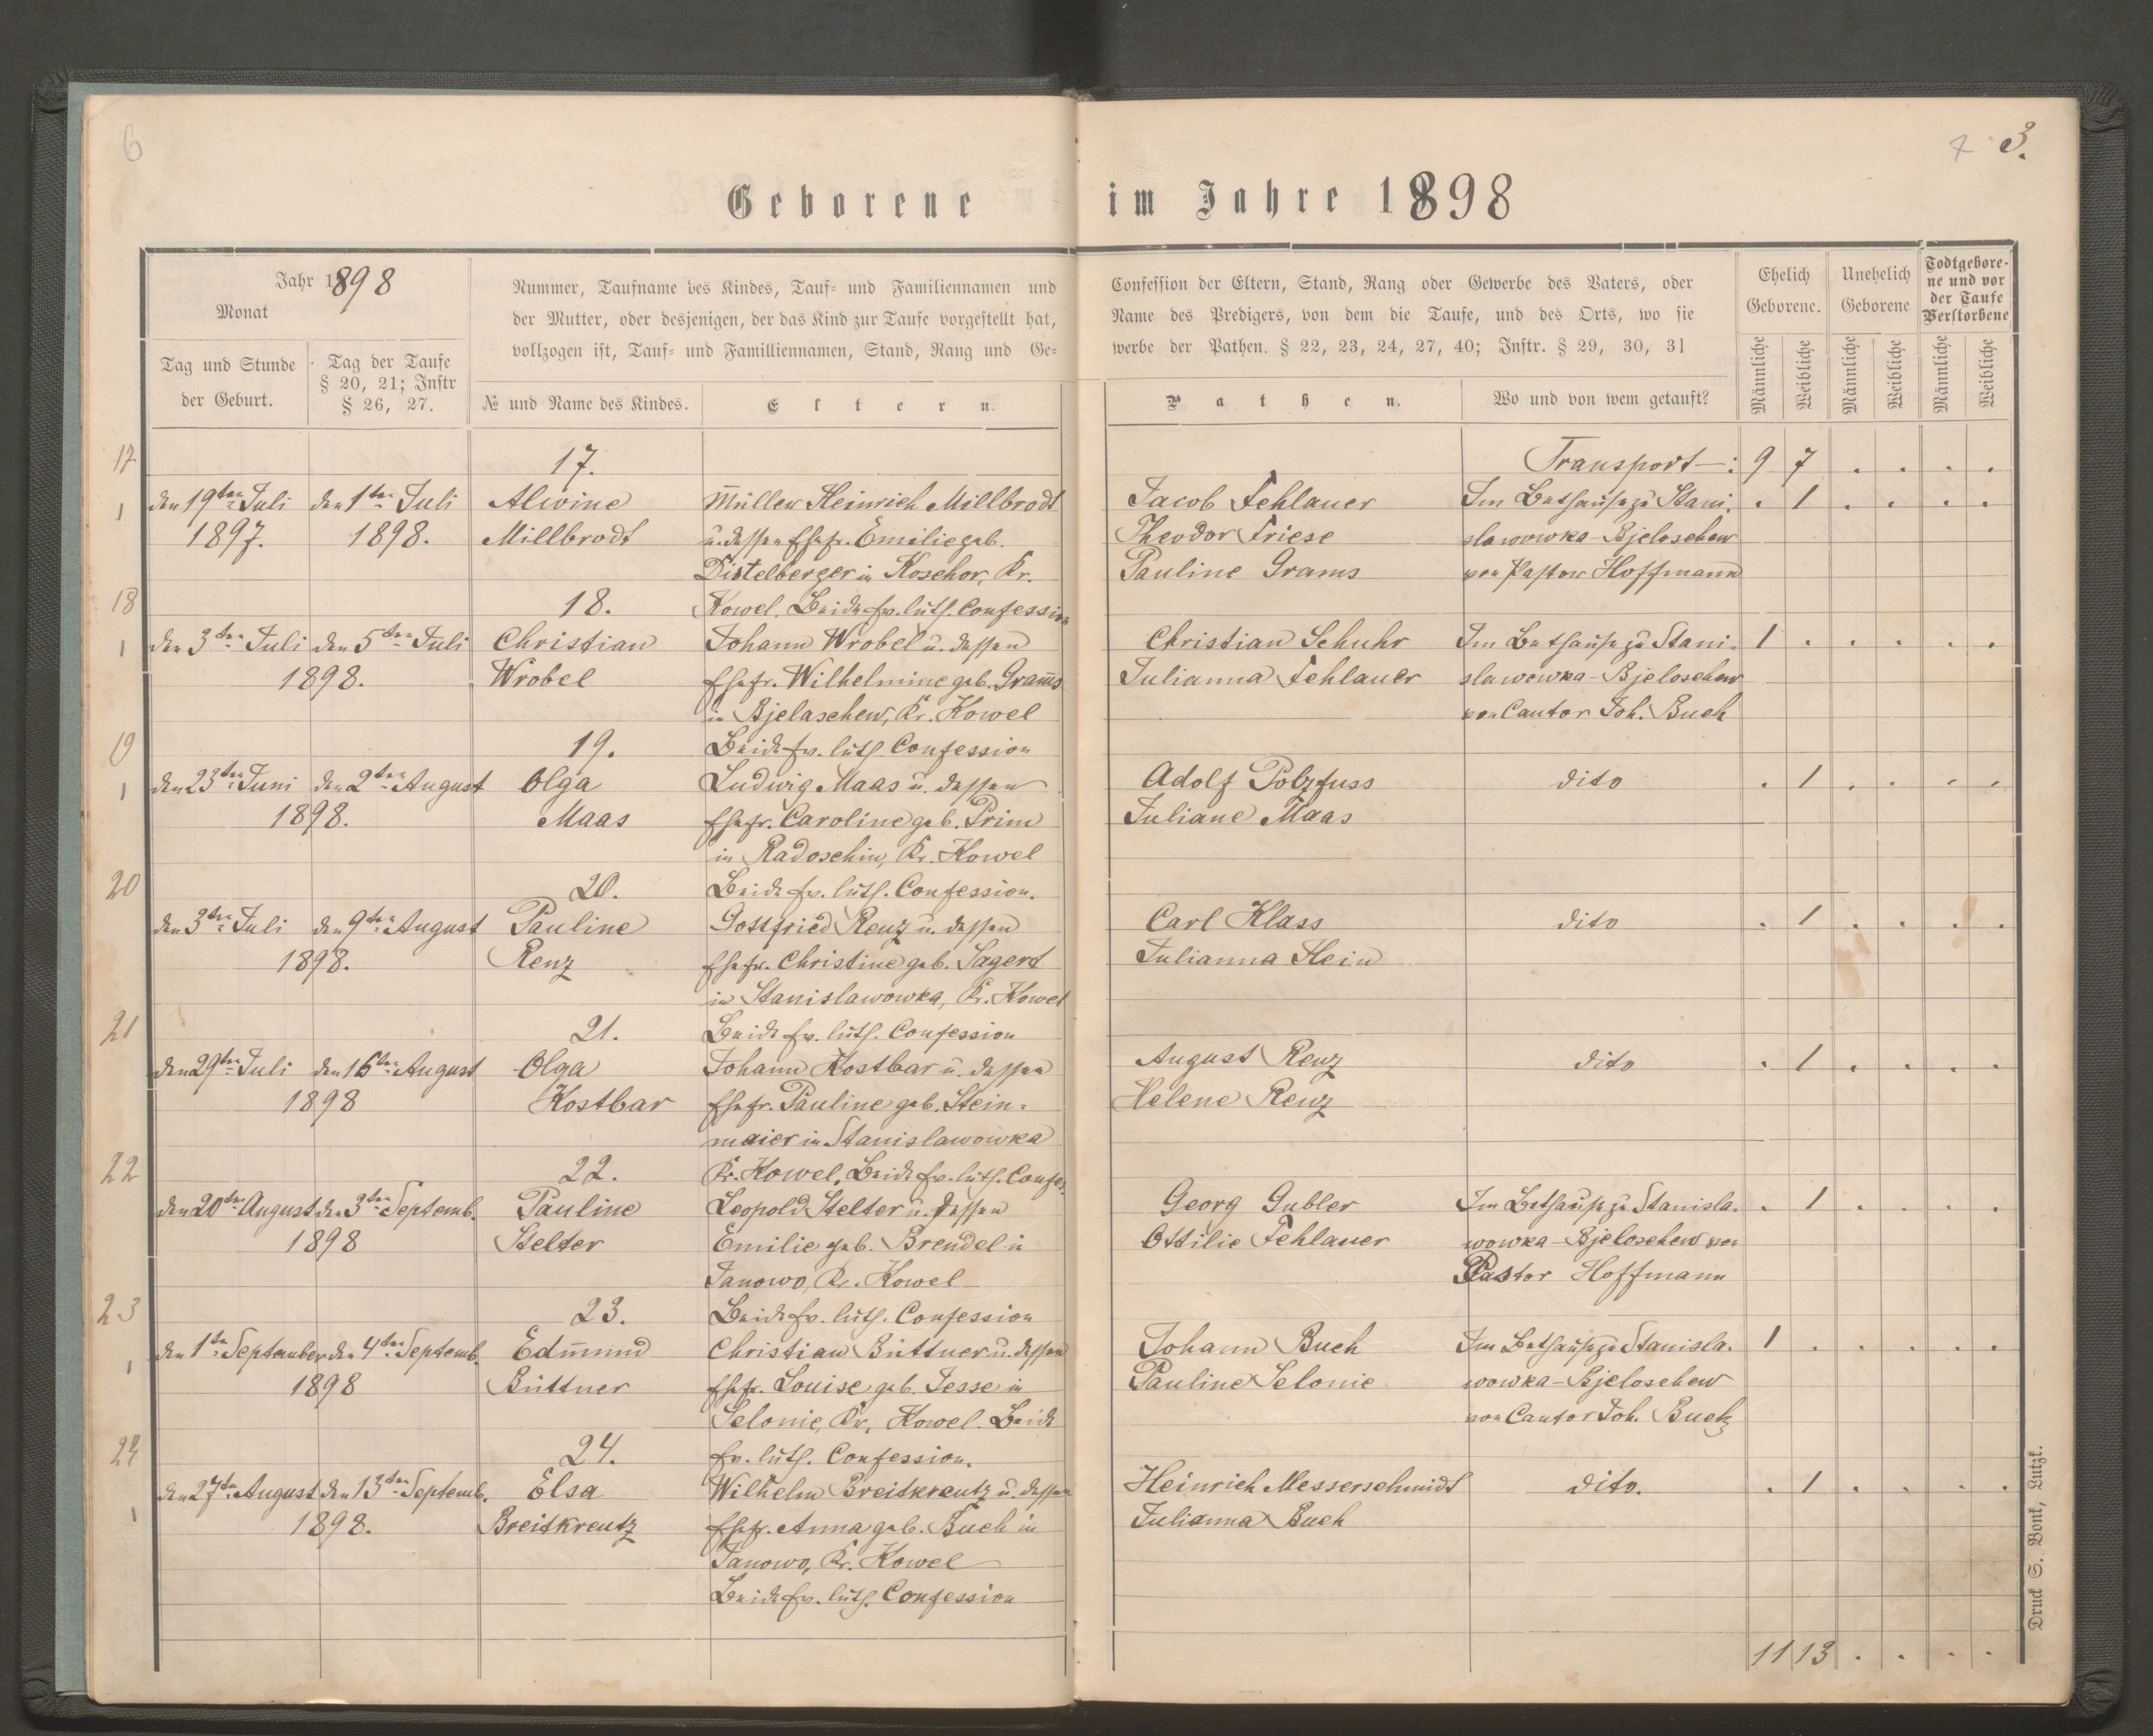 6
7 3.
Geborene im Jahre 1898
Jahr 1898
Monat
Tag und Stunde
der Geburt.
Tag der Taufe
§ 20, 21; Instr
§ 26, 27.
Nummer, Taufname des Kindes, Tauf- und Familiennamen und
der Mutter, oder desjenigen, der das Kind zur Taufe vorgestellt hat,
vollzogen ist, Tauf- und Familliennamen, Stand, Rang und Ge-
№ und Name des Kindes.
Eltern.
Confession der Eltern, Stand, Rang oder Gewerbe des Vaters, oder
Name des Predigers, von dem die Taufe, und des Orts, wo sie
werbe der Pathen. § 22, 23, 24, 27, 40; Instr. § 29, 30, 31
Pathen.
Wo und von wem getauft?
Ehelich
Geborene.
Unehelich
Geborene
Todtgebore-
ne und vor
der Taufe
Verstorbene
Männliche
Weibliche
Männliche
Weibliche
Männliche
Weibliche
Transport—: 9 7 . . . .
17
17.
1
den 19ten Juli
1897.
den 1ten Juli
1898.
Alwine
Millbrodt
Müller Heinrich Millbrodt
u. dessen Ehefr. Emilie geb.
Distelberger in Kosehor, Kr.
Kowel. Beide ev. luth. Confession
Jacob Fehlauer
Theodor Friese
Pauline Grams
Im Bethause zu Stani-
slawowka-Bjeloschew
von Pastor Hoffmann
. 1 . . . .
18
18.
1
den 3ten Juli den 5ten Juli
1898.
Christian
Wrobel
Johann Wrobel u. dessen
Ehefr. Wilhelmine geb. Gram̅s
in Bjelaschew, Kr. Kowel
Beide ev. luth. Confession
Christian Schuhr
Julianna Fehlauer
Im Bethause zu Stani-
slawowka-Bjeloschew
von Cantor Joh. Buch
1 . . . . .
19
19.
1
den 23ten Juni den 2ten August
1898.
Olga
Maas
Ludwig Maas u. dessen
Ehefr. Caroline geb. Prim
in Radoschin, Kr. Kowel
Beide ev. luth. Confession.
Adolf Polzfuss
Juliane Maas
dito
. 1 . . . .
20
20.
den 3ten Juli den 9ten August
1898.
Pauline
Renz
Gottfried Renz u. dessen
Ehefr. Christine geb. Sagert
in Stanislawowka, Kr. Kowel
Beide ev. luth. Confession
Carl Klass
Julianna Hein
dito
. 1 . . . .
21
21.
den 29ten Juli den 16ten August
1898
Olga
Kostbar
Johann Kostbar u. dessen
Ehefr. Pauline geb. Stein-
maier in Stanislawowka
Kr. Kowel, Beide ev. luth. Confes.
August Renz
Helene Renz
dito
. 1 . . . .
22
22.
den 20ten August den 3ten Septemb.
1898
Pauline
Stelter
Leopold Stelter u. dessen
Emilie geb. Brendel in
Janowo, Kr. Kowel
Beide ev. luth. Confession
Georg Gubler
Ottilie Fehlauer
Im Bethause zu Stanisla-
wowka-Bjeloschew von
Pastor Hoffmann
. 1 . . . .
23
23.
1
den 1ten September den 4ten Septemb.
1898
Edm̅und
Büttner
Christian Büttner u. dessen
Ehefr. Louise geb. Jesse in
Selonie, Kr. Kowel. Beide
ev. luth. Confession.
Johann Buch
Pauline Selonie
Im Bethause zu Stanisla-
wowka-Bjeloschew
von Cantor Joh. Buch
1 . . . . .
24
24.
1
den 27ten August den 13ten Septemb.
1898.
Elsa
Breitkreutz
Wilhelm Breitkreutz u. dessen
Ehefr. Anna geb. Buch in
Janowo, Kr. Kowel
Beide ev. luth. Confession
Heinrich Messerschmidt
Julianna Buch
dito.
. 1 . . . .
11 13 . . . .
Druck S. Bont, Lutzk.